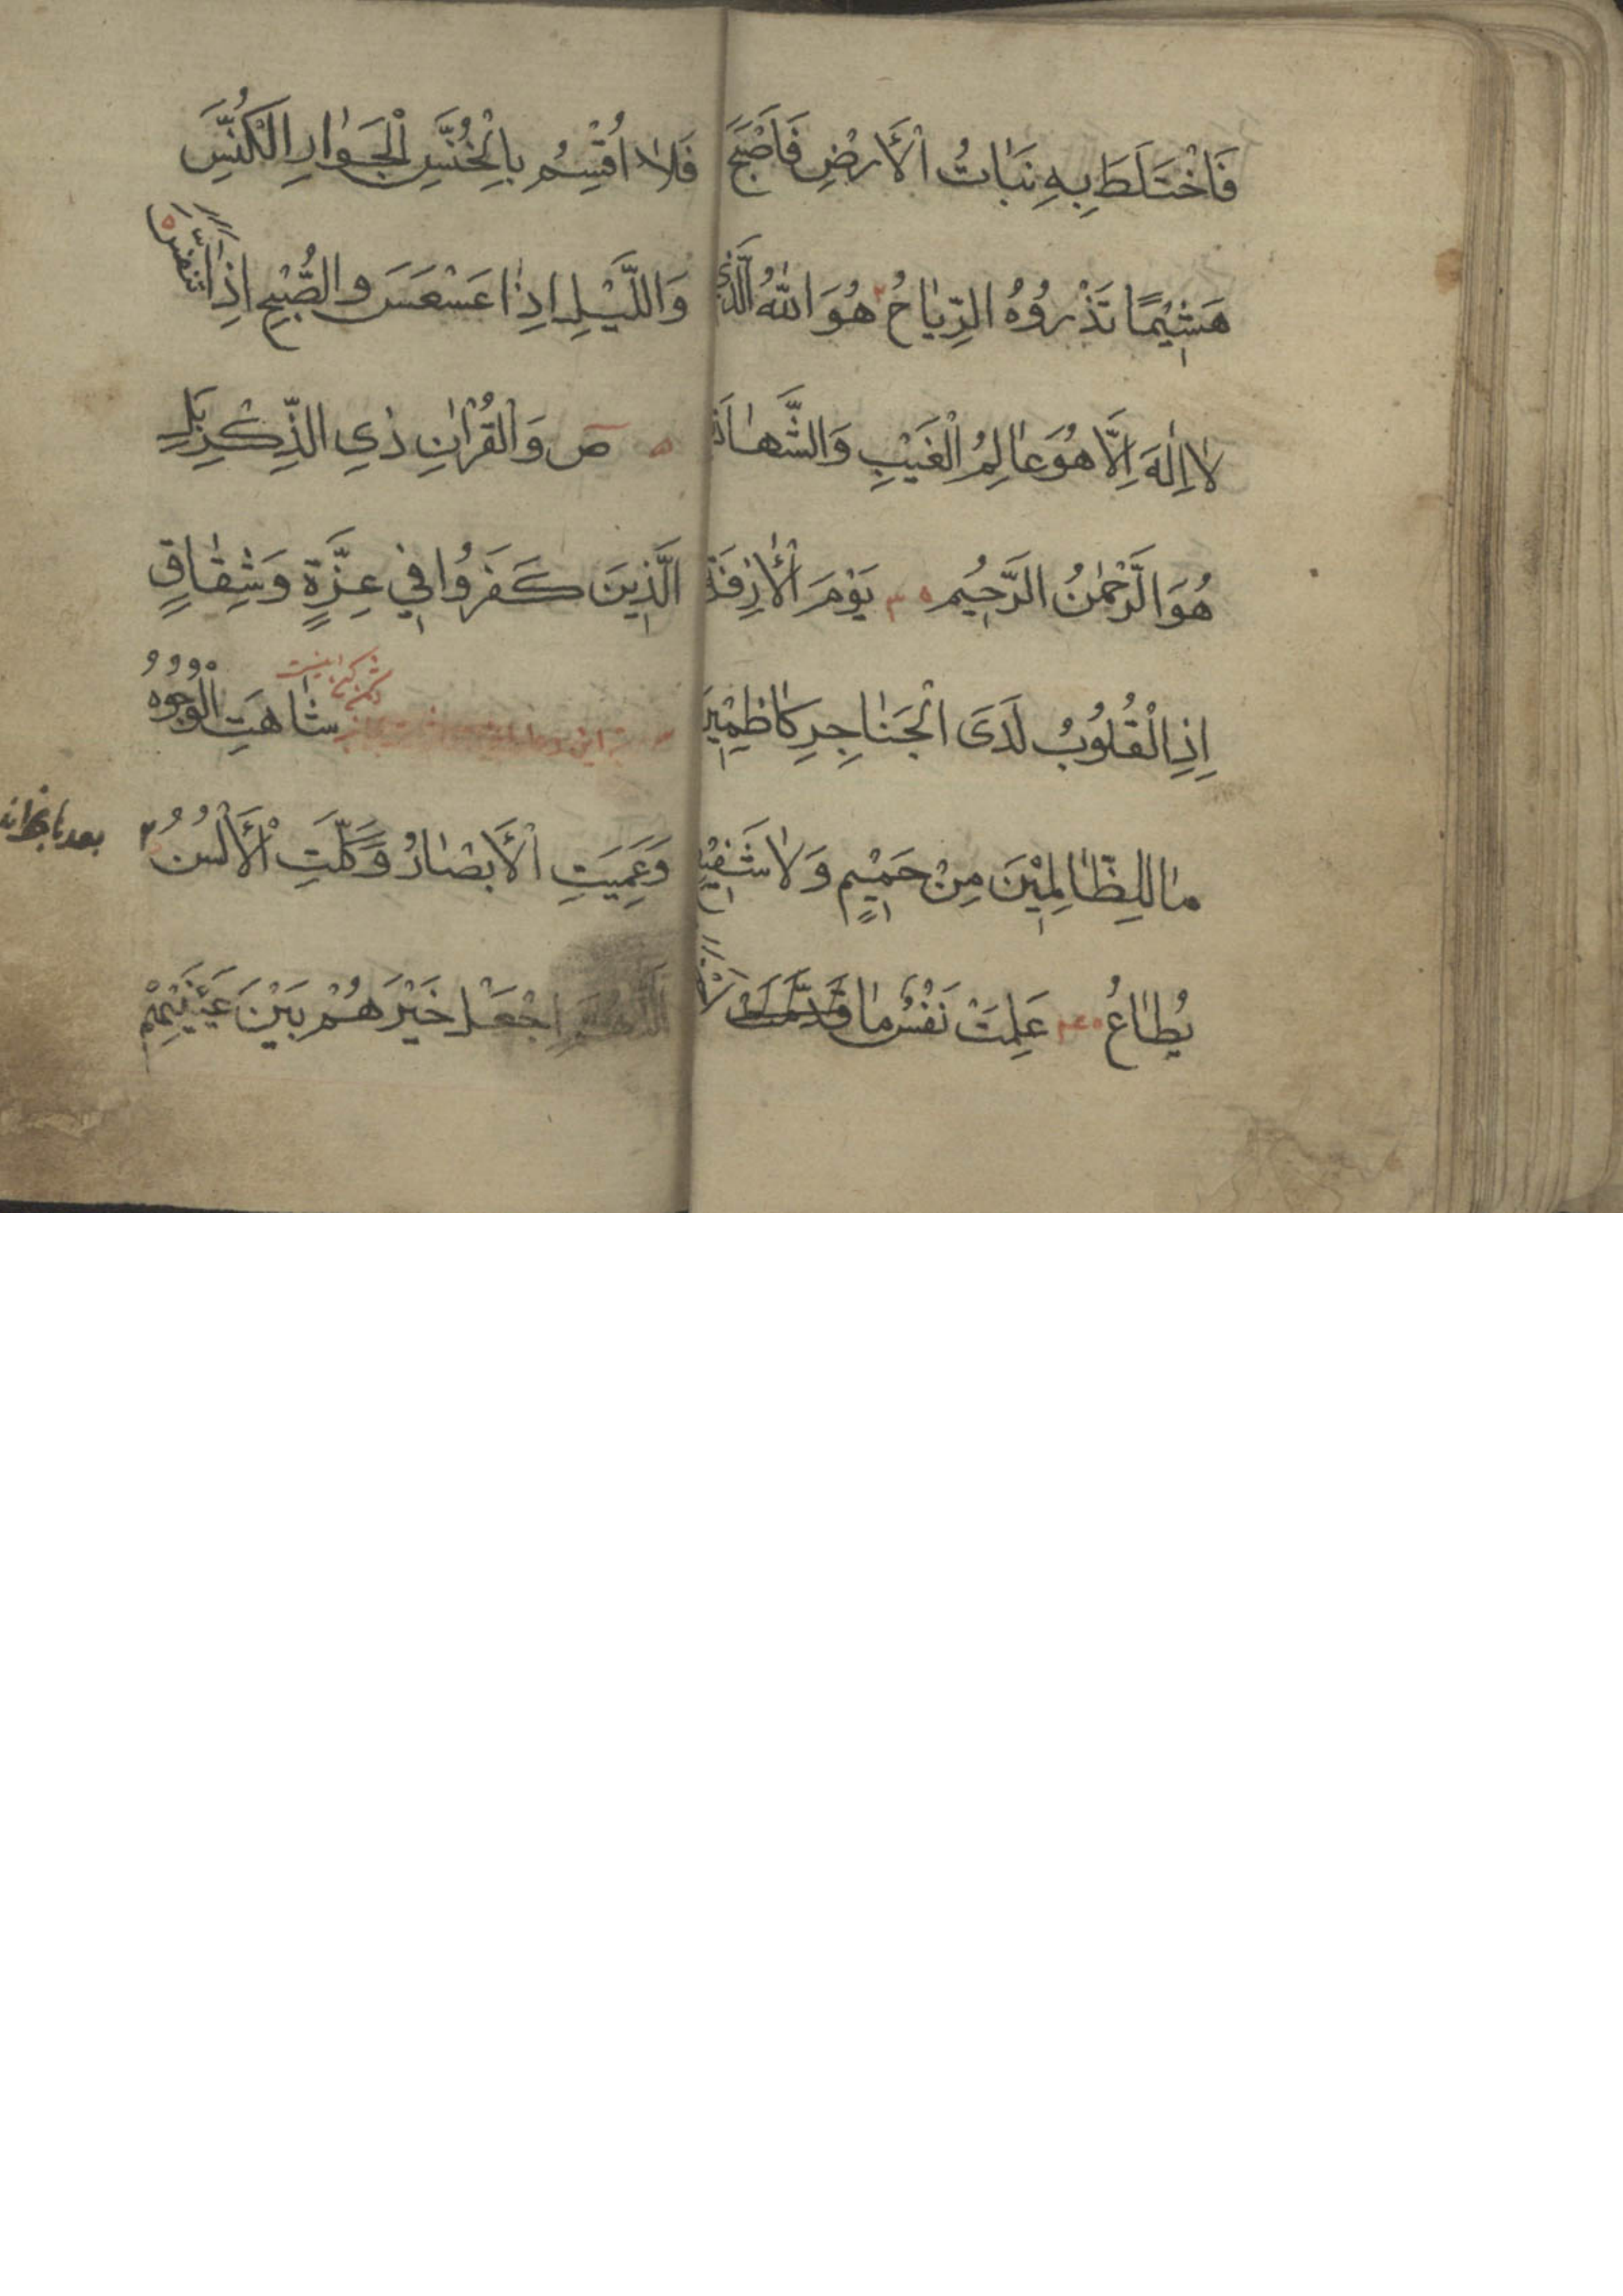 فَاخْتَلَطَ بِهِ نَبَاتُ الْأَرْضِ فَاَصْبَحَ
هَشِيْمًا تَذْرُوُهُ الرِّيَاحُ ٢ هُوَ اللهُ الَّذِي
لَا اِلٰهَ اِلَّا هُوَ عَالِمُ الْغَيْبِ وَالشَّهَادَة
هُوَ الرَّحْمٰنُ الرَّحِيْمُ ٥ ٣ يَوْمَ الْأَزِفَة
اِذِ الْقُلُوْبُ لَدَى الْحَنَاجِرِ كَاظِمِيْنَ
مَا لِلظَّالِمِيْنَ مِنْ حَمِيْمٍ وَلَا شَفِيْعٍ
يُطَاعُ ٥ ٤ عَلِمَتْ نَفْسٌ مَا
فَلَا اُقْسِمُ بِالْخُنَّسِ الْجَوَارِ الْكُنَّسِ
وَاللَّيْلِ اِذَا عَسْعَسَ وَالصُّبْحِ اِذَا تَنَفَّسَ ٥
٥ ص وَالْقُرْاٰنِ ذِي الذِّكْرِ بَلِ
الَّذِينَ كَفَرُوا فِي عِزَّةٍ وَشِقَاقٍ
شَاهَتِ الْوُجُوْهُ
وَعَمِيَتِ الْأَبْصَارُ وَكَلَّتِ الْأَلْسُنُ ٣
اَللّٰهُمَّ اجْعَلْ خَيْرَهُمْ بَيْنَ عَيْنَيْهِمْ